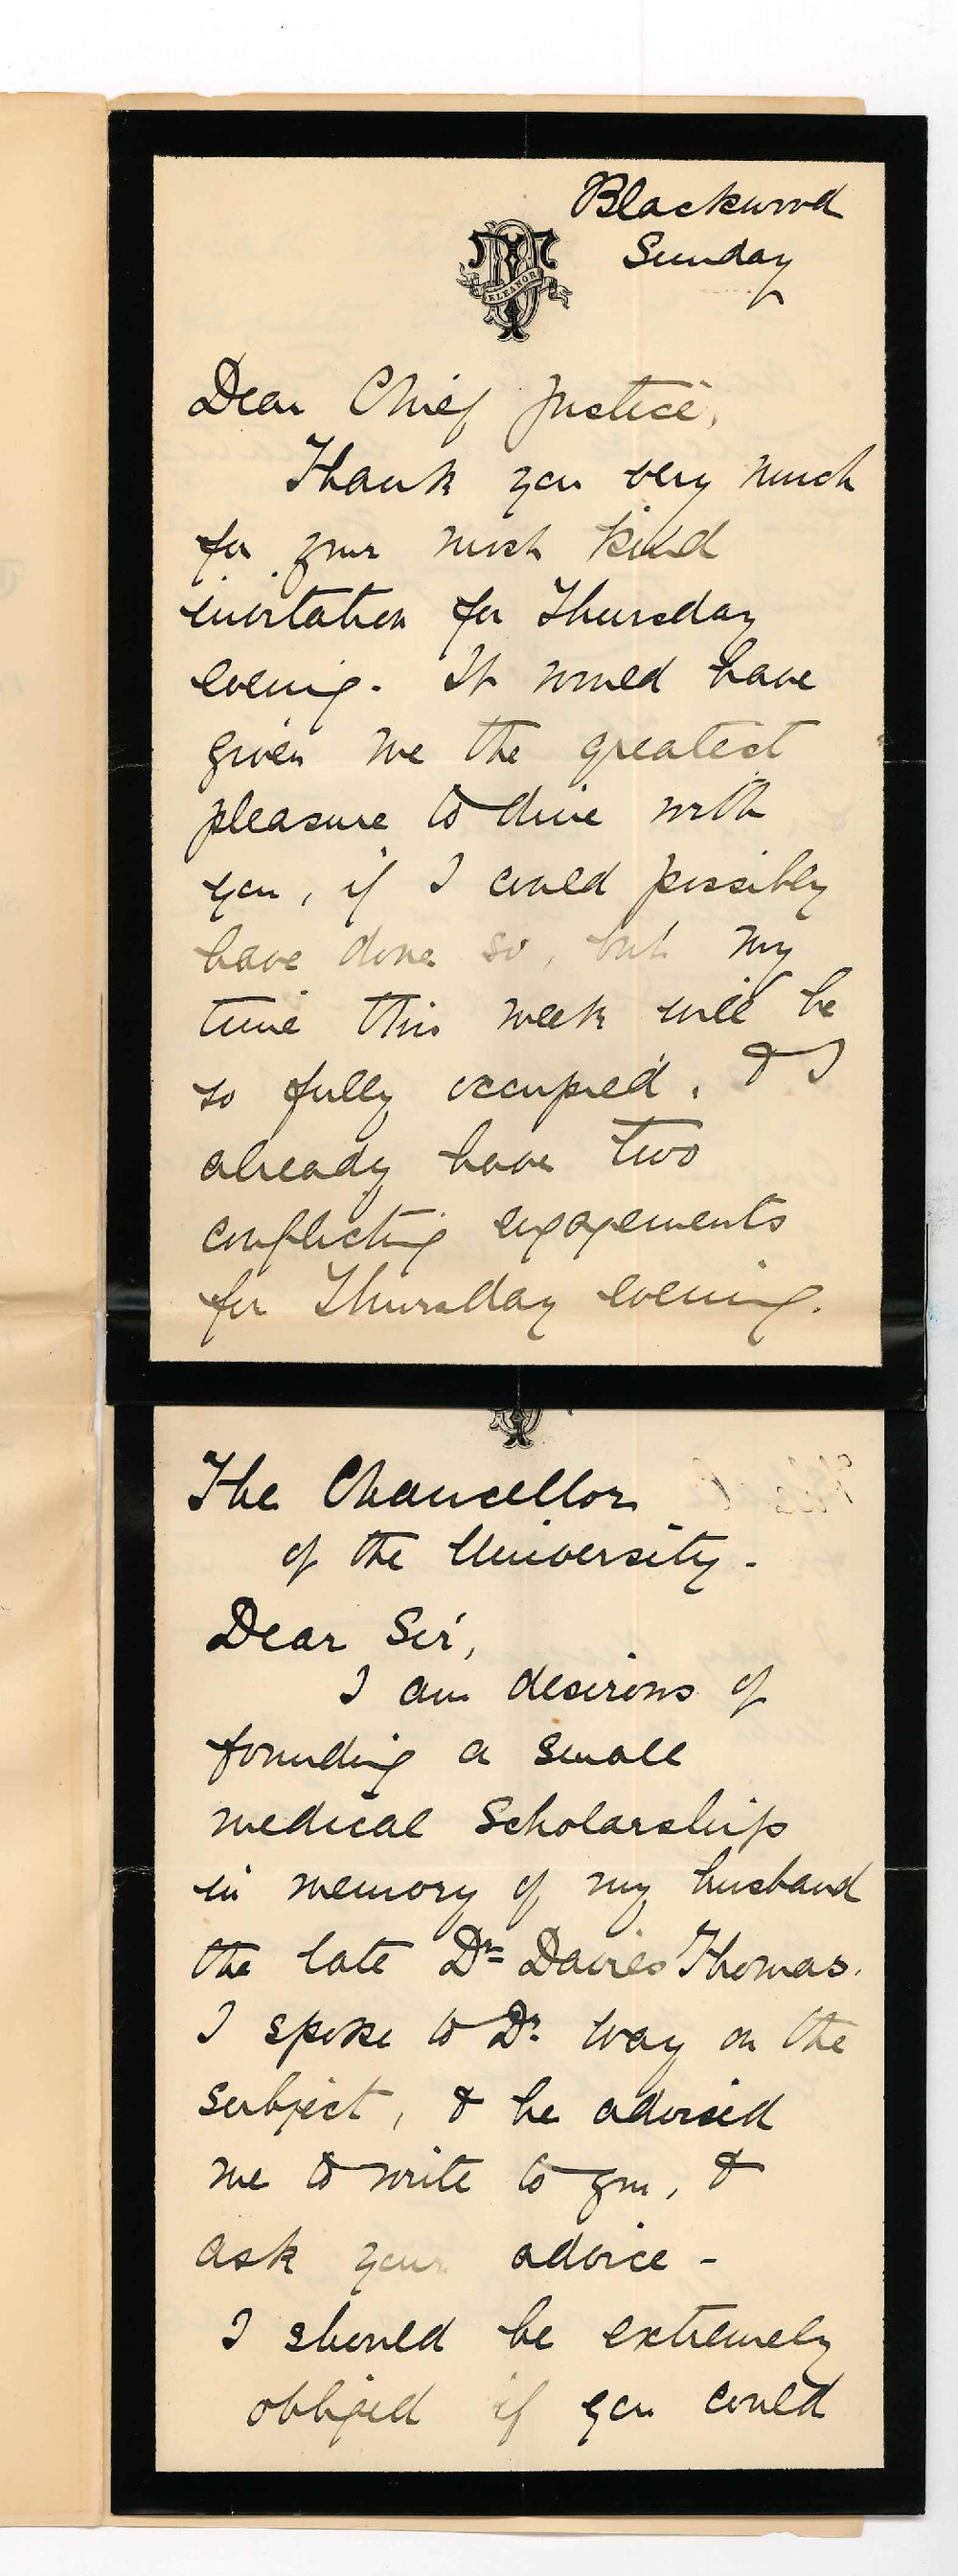 Blackwood
Sunday
ELEANOR
Dear Chief Justice,
Thank you very much
for your most kind
invitation for Thursday
evening. It would have
given me the greatest
pleasure to dine with
you, if I could possibly
have done so, but my
time this week will be
so fully occupied, & I
already have two
conflicting engagements
for Thursday evening.
The Chancellor
of the University -
Dear Sir,
I am desirous of
founding a small
medical Scholarship
in memory of my husband
the late Dr Davies Thomas.
I spoke to Dr. Way on the
subject, & he advised
me to write to you, &
ask your advice -
I should be extremely
obliged if you could